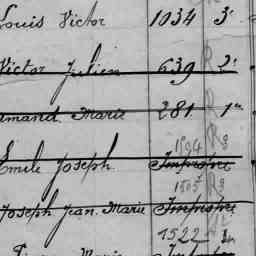 Louis Victor 1034 3e
Victor Julien 639 2e
Armand Marie 281 1re
1594 R8
Emile Joseph Impropre
1505 R8
Joseph Jean Marie Impropre
1522
Marie Impropre